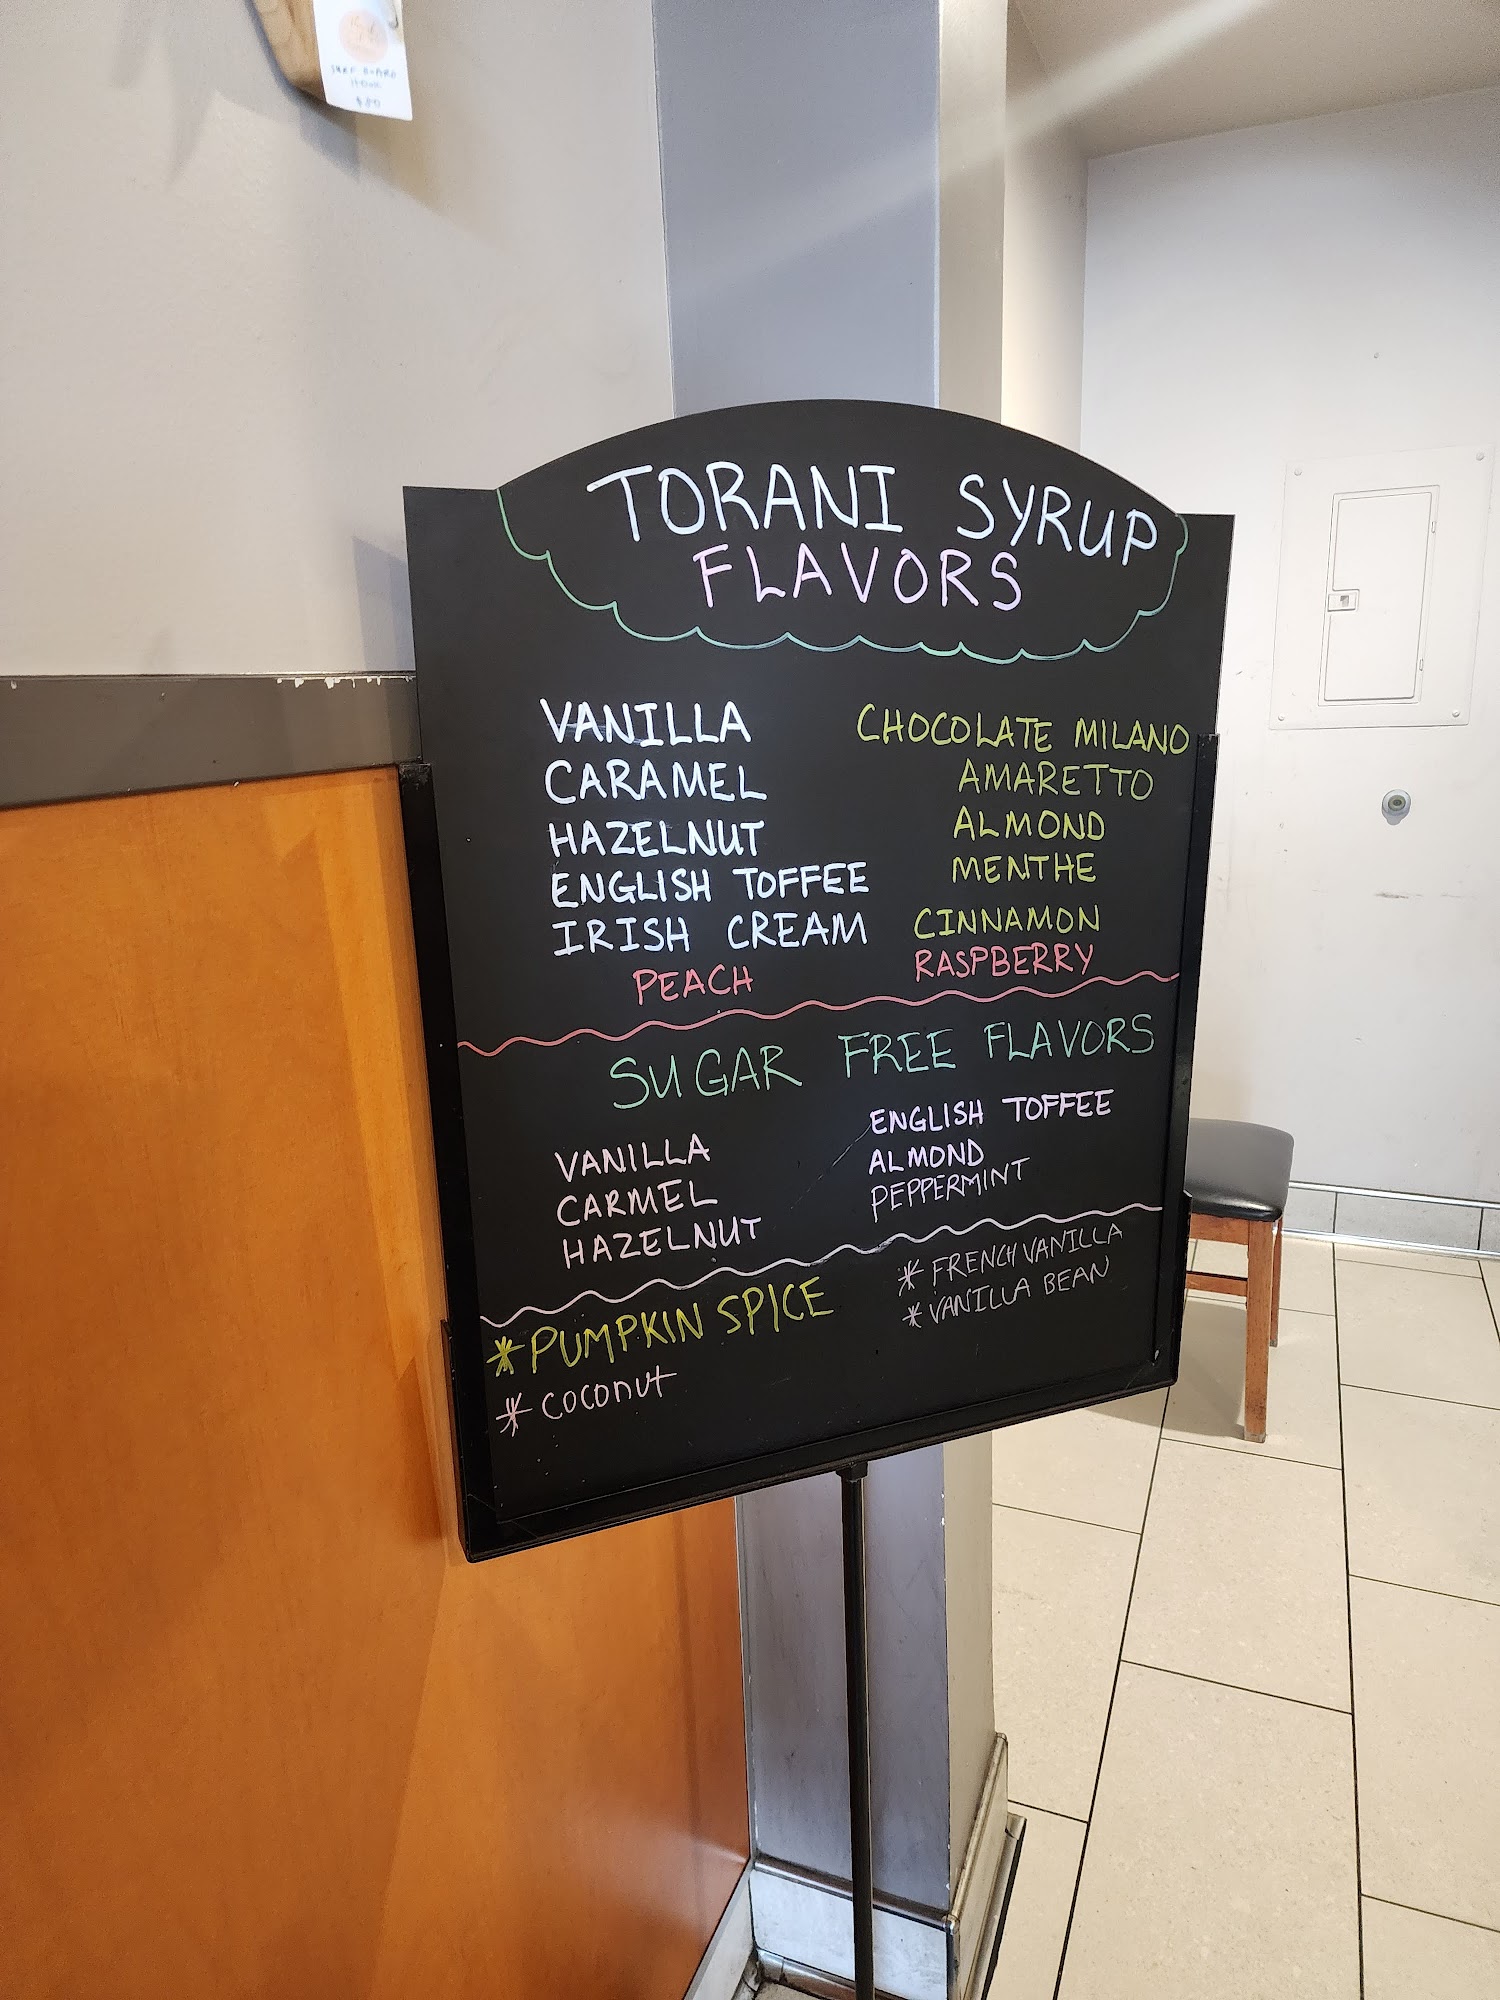 $80
TORANI SYRUP
FLAVORS
VANILLA
CARAMEL
HAZELNUT
ENGLISH TOFFEE
IRISH CREAM
PEACH
CHOCOLATE MILANO
AMARETTO
ALMOND
MENTHE
CINNAMON
RASPBERRY
SUGAR FREE FLAVORS
VANILLA
CARMEL
HAZELNUT
ENGLISH TOFFEE
ALMOND
PEPPERMINT
*PUMPKIN SPICE
*COCONUT
*FRENCH VANILLA
*VANILLA BEAN